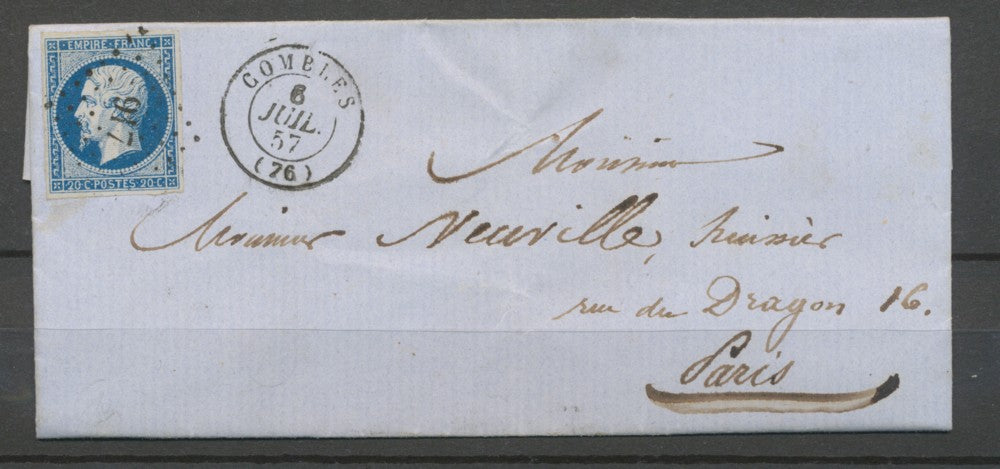 EMPIRE FRANC
20·C·POSTES·20·C
COMBLES
6
JUIL.
57
(76)
Monsieur
Monsieur Neuville, huissier
rue du Dragon 16.
Paris